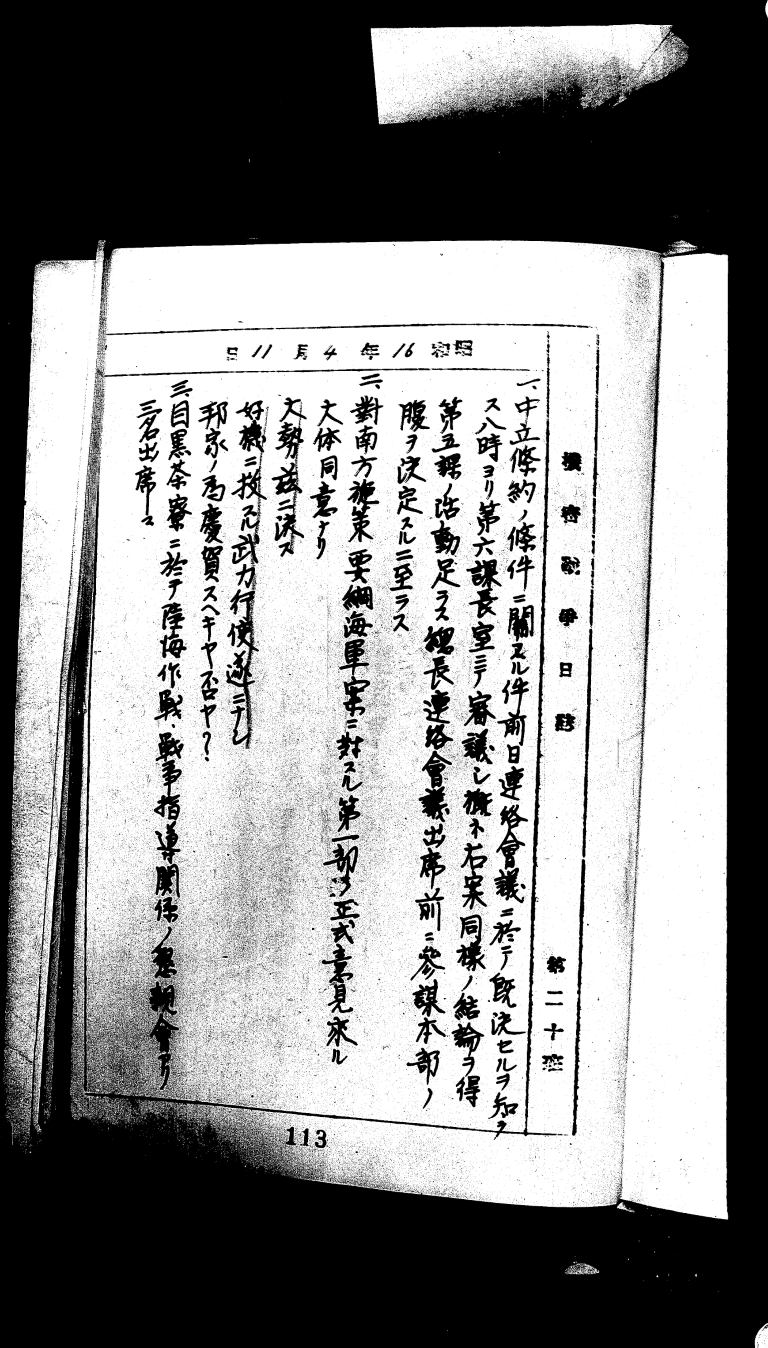 機密戰爭日誌
第二十班
昭和16年4月11日
一、中立條約ノ條件ニ關スル件前日連絡會議ニ於テ既決セルヲ知ラ
ス八時ヨリ第六課長室ニテ審議シ概ネ右案同樣ノ結論ヲ得
第五課ノ活動足ラス總長連絡會議出席前ニ參謀本部ノ
腹ヲ決定スルニ至ラス
二、對南方施策要綱海軍案ニ對スル第一部ノ正式意見來ル
大体同意ナリ
大勢茲ニ決ス
好機ニ投スル武力行使遂ニナシ
邦家ノ爲慶賀スヘキヤ否ヤ?
三、目黒茶寮ニ於テ陸海作戰、戰爭指導關係ノ懇親會アリ
三名出席ス
113